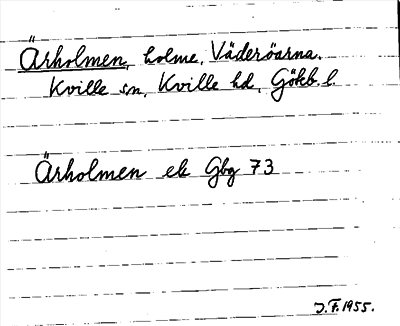 Ärholmen, holme, Väderöarna.
Kville sn, Kville hd, Göteb. l.
Ärholmen ek Gbg 73
J.F. 1955.